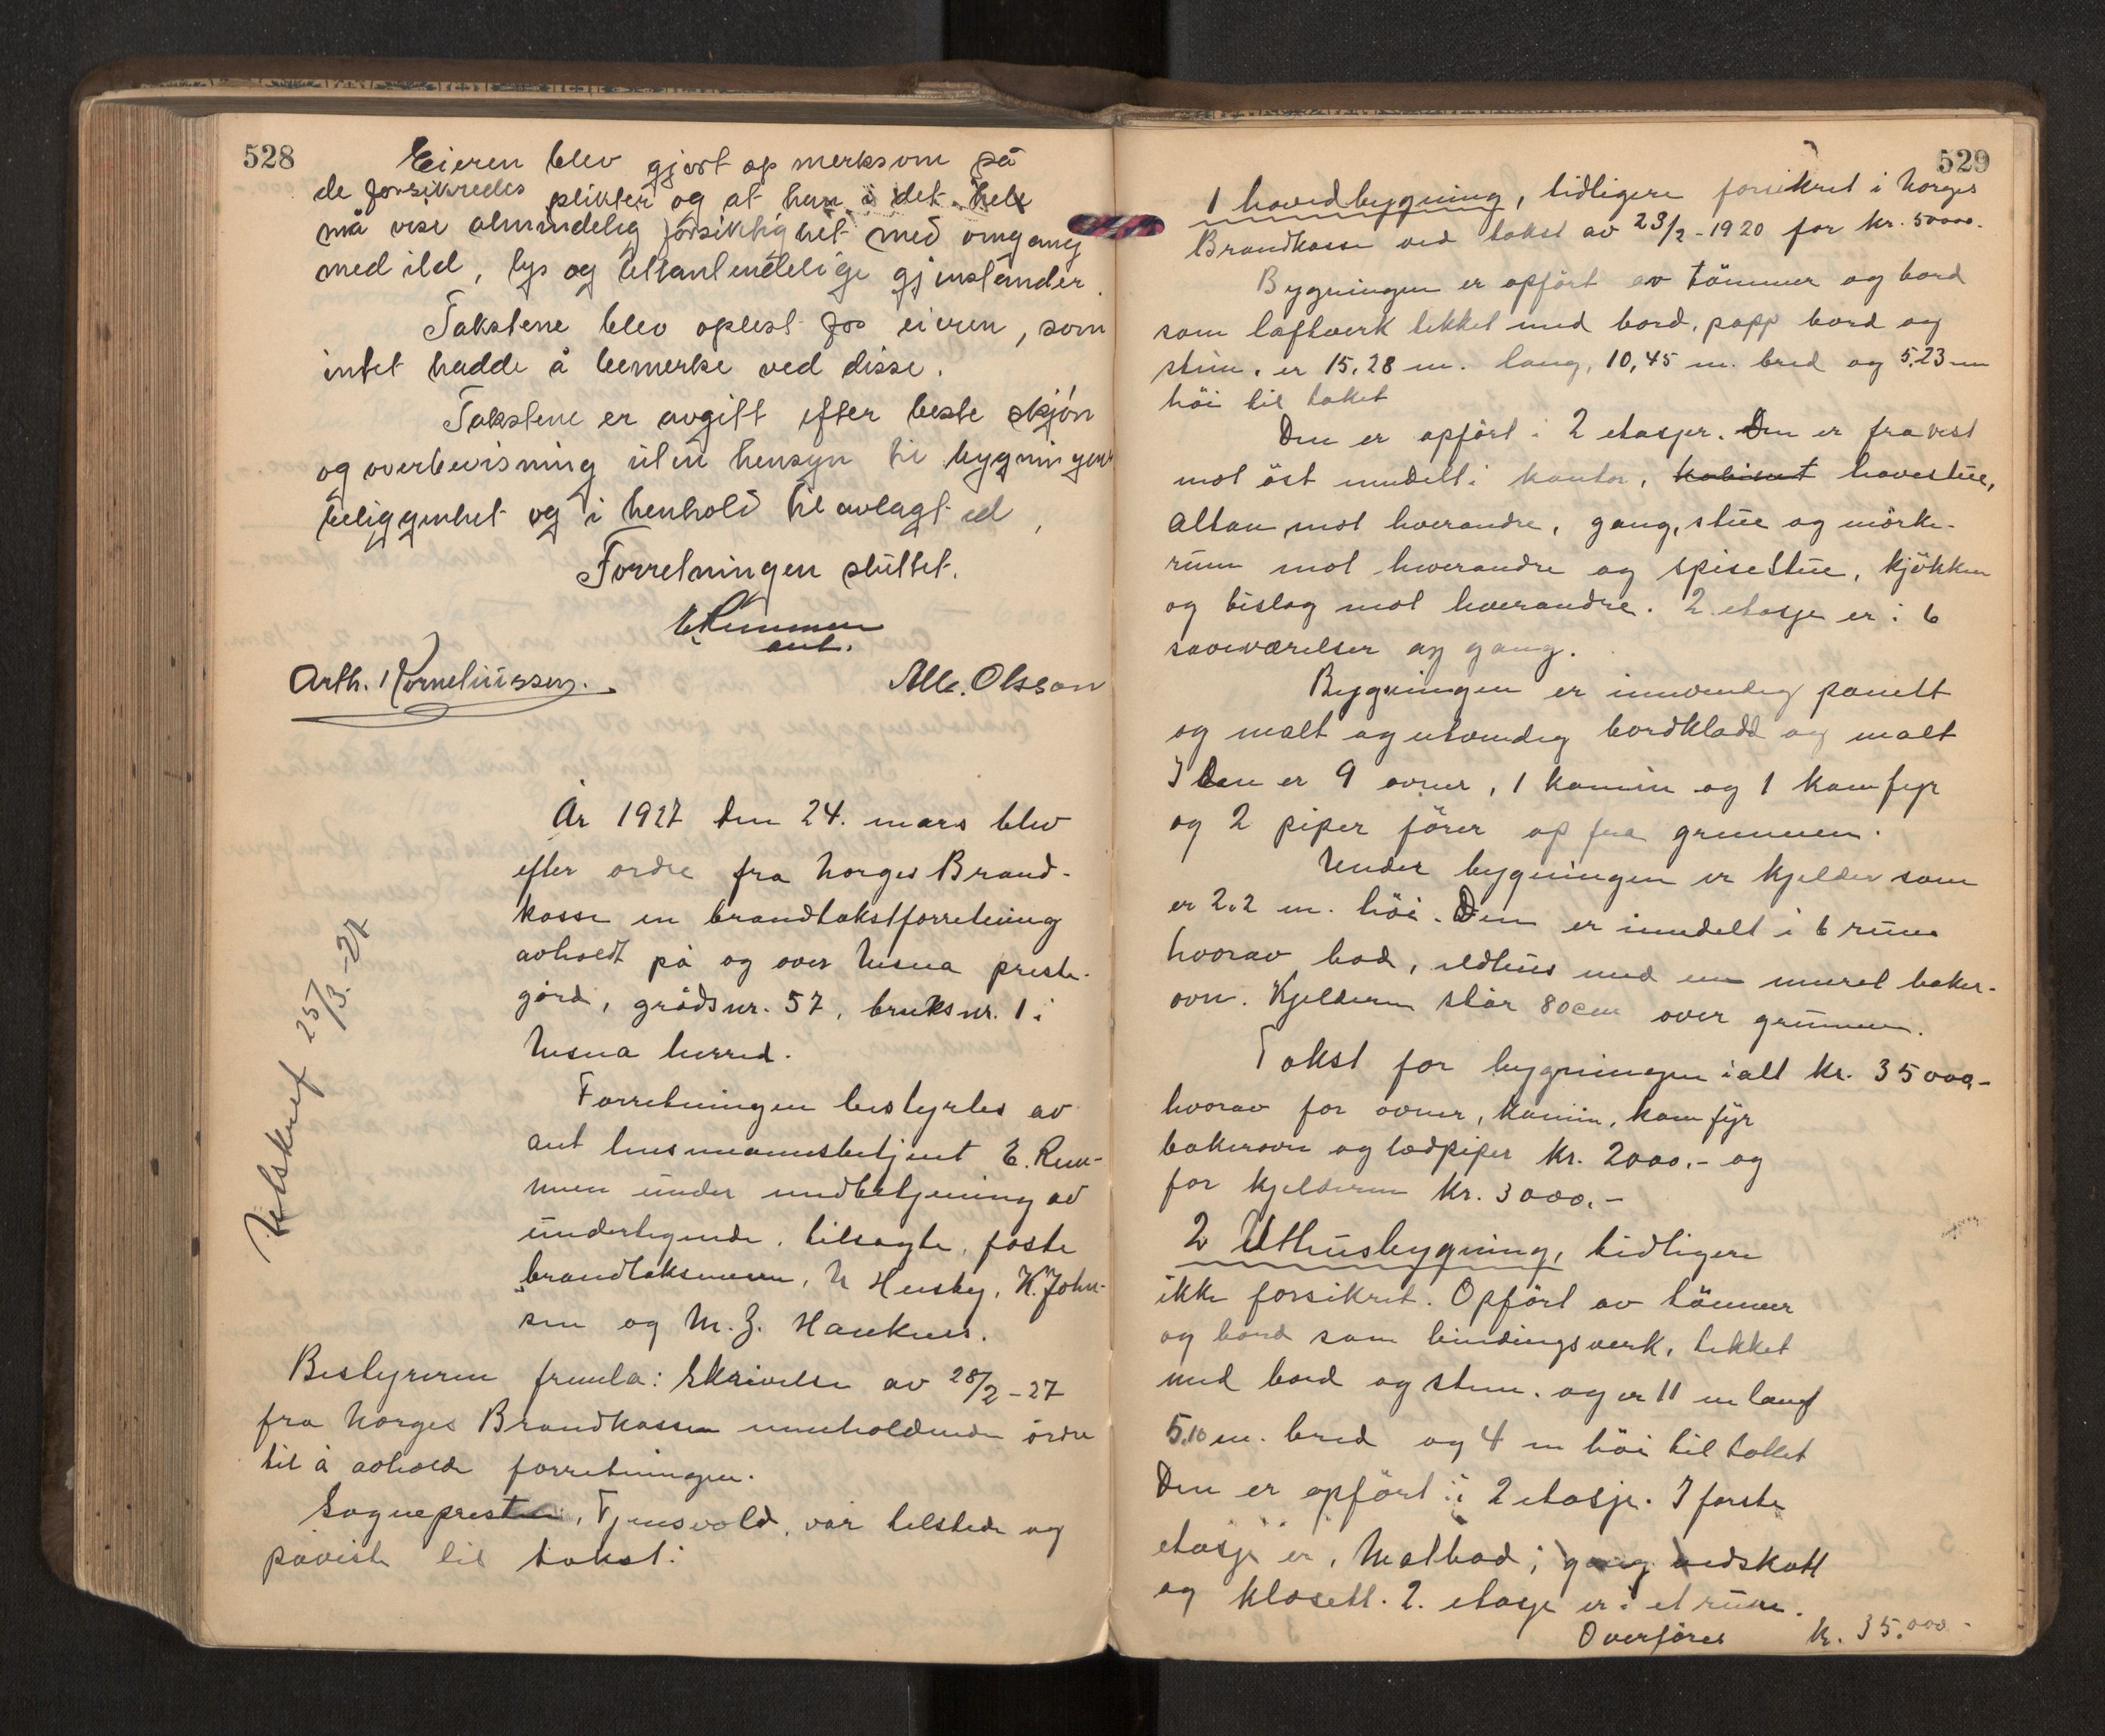 528
Eieren blev gjort op merksom på
de forsikredes plikter og at han i det hele
må vise almindelig forsiktighet med omgang
med ild, lys og lettantendelige gjenstander.
Takstene blev oplest for eieren, som
intet hadde å bemerke ved disse.
Takstene er avgitt efter beste skjön
og overbevisning uten hensyn til bygningens
beliggenhet og i henhold til avlagt ed,
Forretningen sluttet.
E Remmen
aut.
Arth. Korneliussen. Alb. Olsson
År 1927 den 24. mars blev
efter ordre fra Norges Brand-
kasse en brandtakstforretning
avholdt på og over Nesna preste-
gård, grådsnr. 57, bruksnr. 1 i
Nesna herred.
Forretningen bestyrtes av
aut lensmannsbetjent E. Rem-
men under medbetjening av
undertegnede, tilsagte, faste
brandtaksmenn, N Husby, K. John-
sen og M. Z. Hauknes.
Utskrift 25/3.-27
Bestyreren fremla: Skrivelse av 28/2-27
fra Norges Brandkasse inneholdende ordre
til å avholde forretningen.
Sognepresten, Tjensvold, var tilstede og
påviste til takst:
529
1 hovedbygning, tidligere forsikret i Norges
Brandkasse ved takst av 23/2-1920 for kr. 50000.
Bygningen er opfört av tömmer og bord
som laftverk tekket med bord, papp bord og
sten, er 15,28 m. lang, 10,45 m. bred og 5,23 m
höi til taket
Den er opfört i 2 etasjer. Den er fra vest
mot öst inndelt i kontor, kabinet havestue,
altan mot hverandre, gang, stue og mörke-
rum mot hverandre og spisestue, kjökken
og bislag mot hverandre. 2. etasje er i 6
soveværelser og gang.
Bygningen er innvendig panelt
og malt og utvendig bordkladd og malt
I den er 9 ovner, 1 kamin og 1 komfyr
og 2 piper förer op fra grunnen.
Under bygningen er kjelder som
er 2,2 m. höi. Den er inndelt i 6 rum
hvorav bad, ildhus med en muret baker-
ovn. Kjelderen står 80 cm over grunnen.
Takst for bygningen ialt kr. 35000,-
hvorav for ovner, kamin, komfyr
bakerovn og lædpiper kr. 2000.- og
for kjelderen kr. 3000.-
2 Uthusbygning, tidligere
ikke forsikret. Opfört av tömmer
og bord som bindingsverk, tekket
med bord og sten. og er 11 m lang
5,10 m. bred og 4 m höi til taket
Den er opfört i 2 etasje. I forste
etasje er, Matbod, gang vedskott
og klosett. 2. etasje er i et rum.
Overföres kr. 35.000-